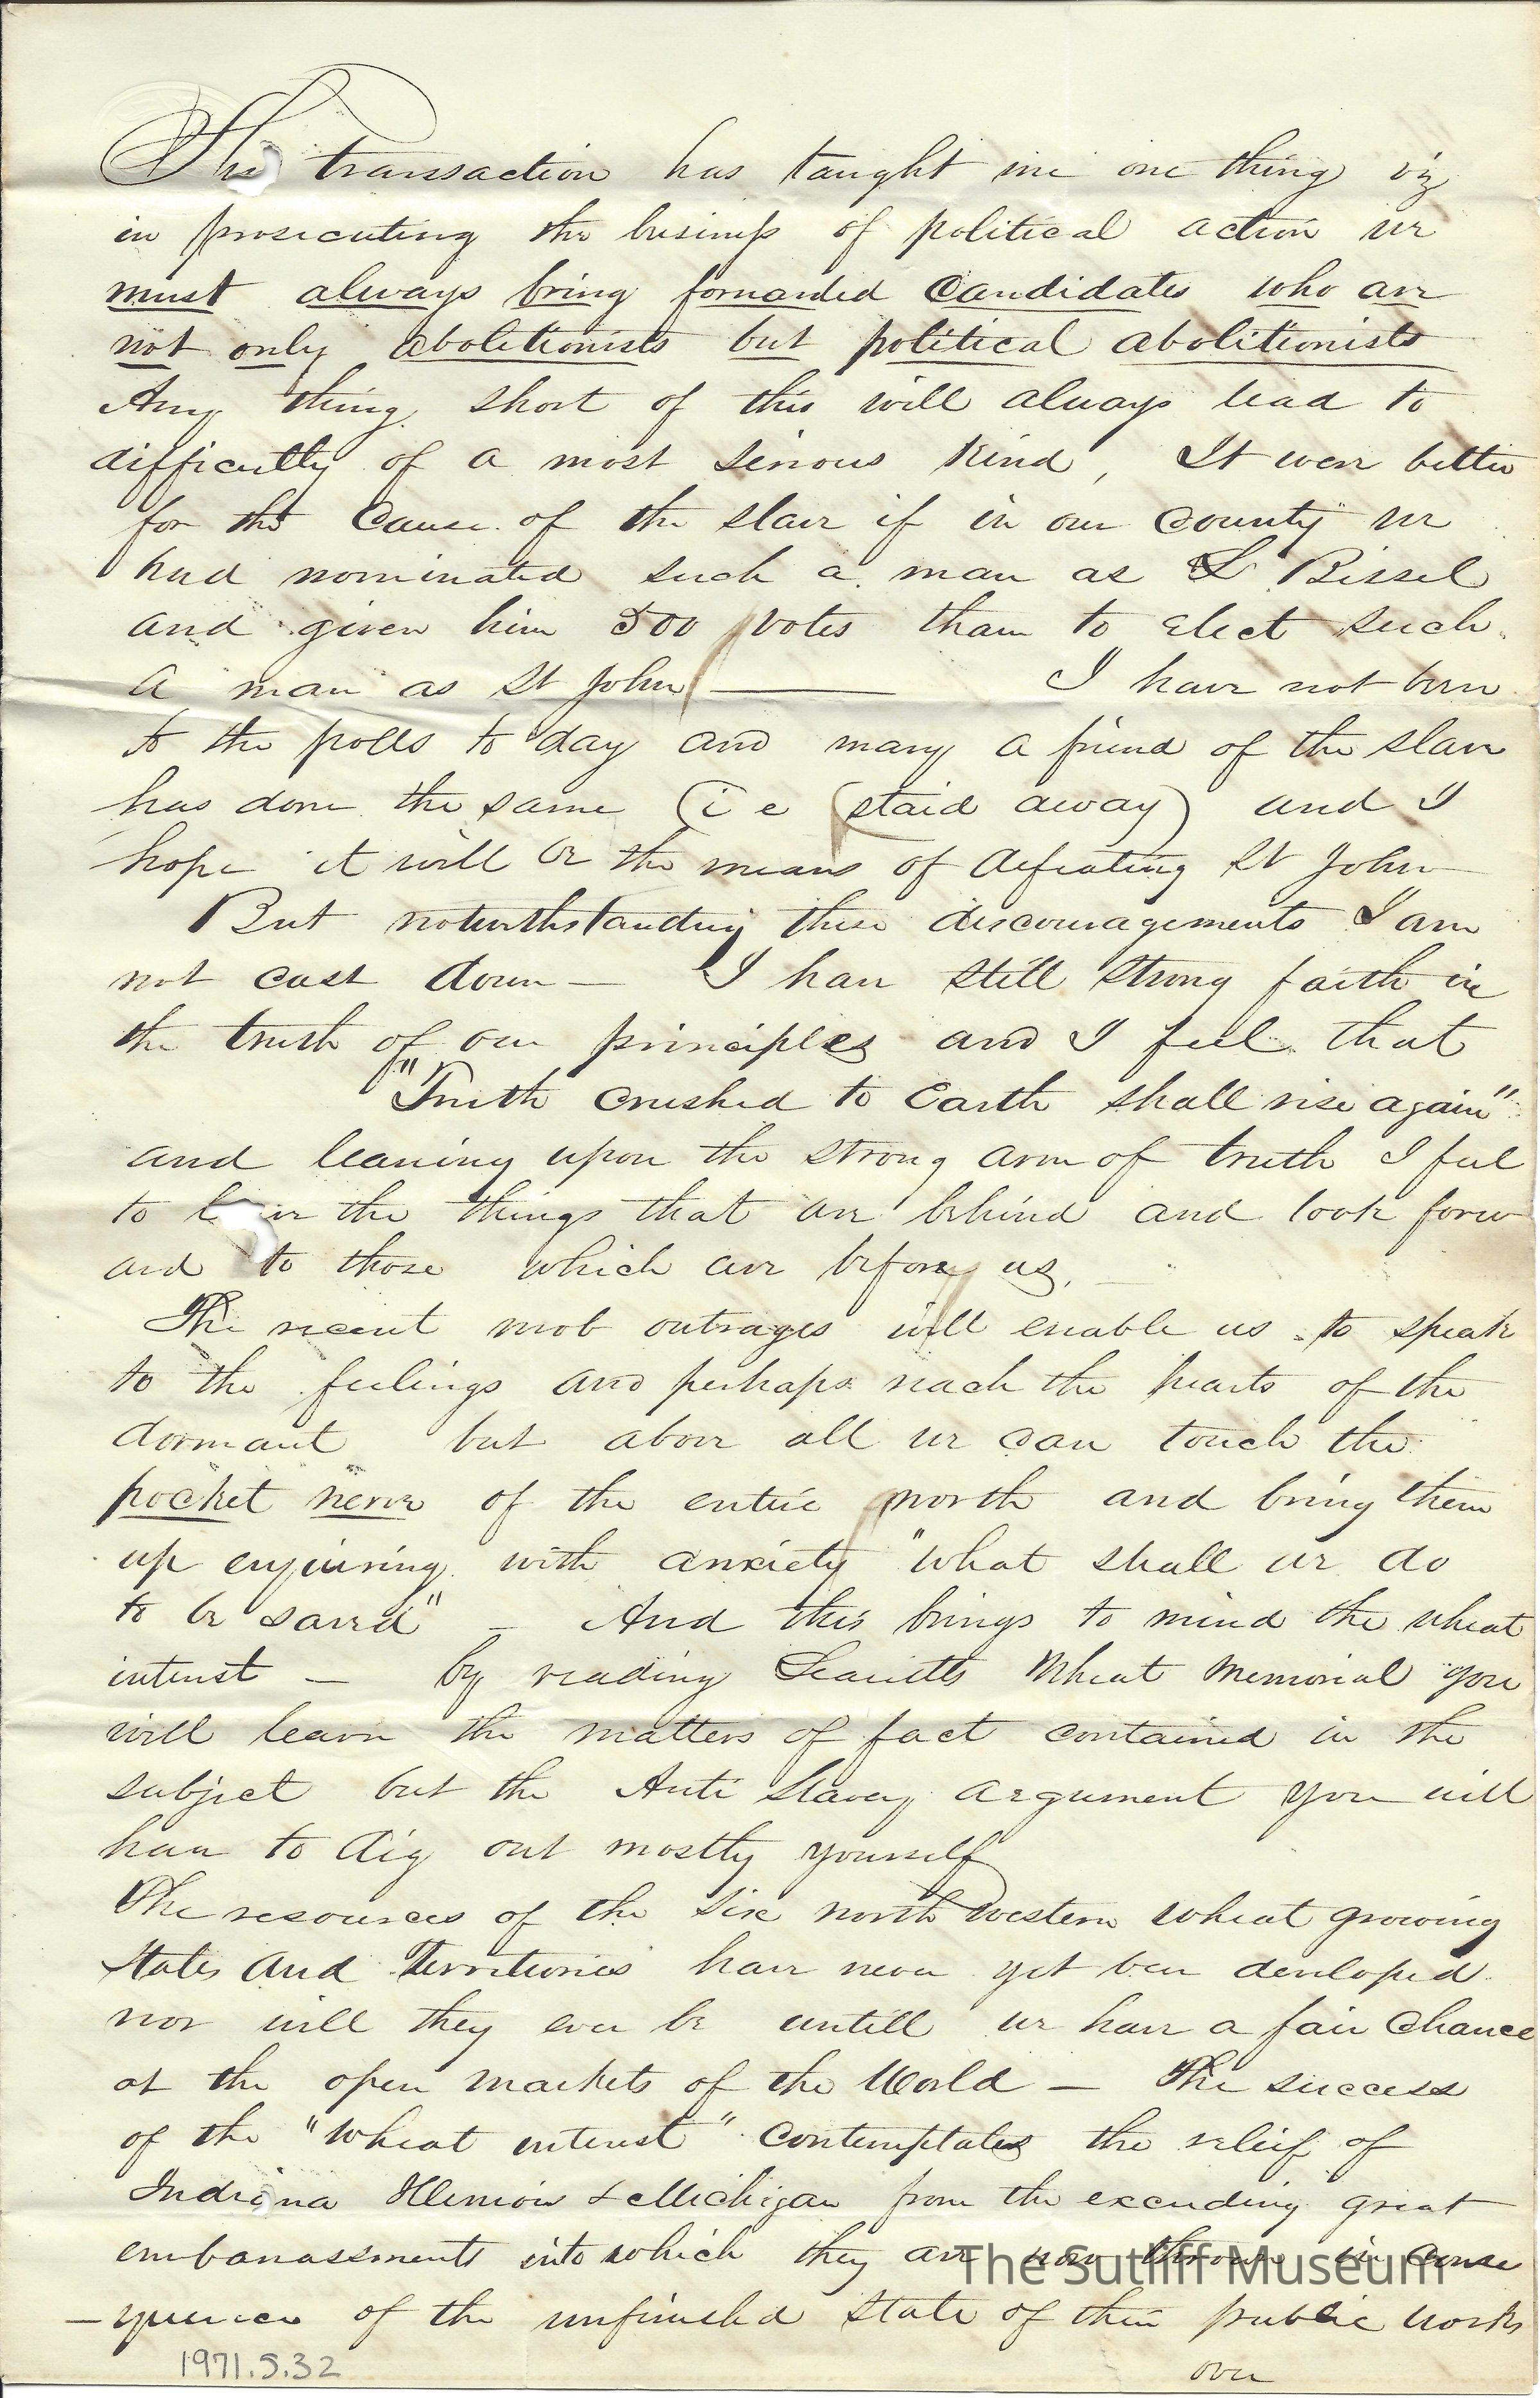 This transaction has taught me one thing viz
in prosecuting the business of political action we
must always bring forwarded candidates who are
not only abolitionists but political abolitionists
Any thing short of this will always lead to
difficultty of a most serious kind, It were better
for the cause of the slave if in our county we
had nominated such a man as L Bissel
and given him 500 votes than to elect such
a man as St John — I have not been
to the polls to day and many a friend of the slave
has done the same (i e (staid away) and I
hope it will be the means of defeating St John
But notwithstanding these discouragements I am
not cast down — I have still strong faith in
the truth of our principles and I feel that
"Truth crushed to Earth shall rise again"
and leaning upon the strong arm of truth I feel
to leave the things that are behind and look forw
ard to those which are before us,
The recent mob outrages will enable us to speak
to the feelings and perhaps reach the hearts of the
dormant but above all we can touch the
pocket nerve of the entire north and bring them
up enquiring with anxiety "what shall we do
to be saved" — And this brings to mind the wheat
interest — by reading Leavitts Wheat Memorial you
will learn the matters of fact contained in the
subject but the Anti Slavery argument you will
have to dig out mostly yourself
The resources of the six north western wheat growing
States and Territories have never yet been developed
nor will they ever be untill we have a fair chance
at the open markets of the World — The success
of the "wheat interest" contemplates the relief of
Indiana Illinois & Michigan from the exceeding great
embarrassments into which they are now thrown in conse
-quence of the unfinished state of their public works
over
1971.5.32
The Sutliff Museum